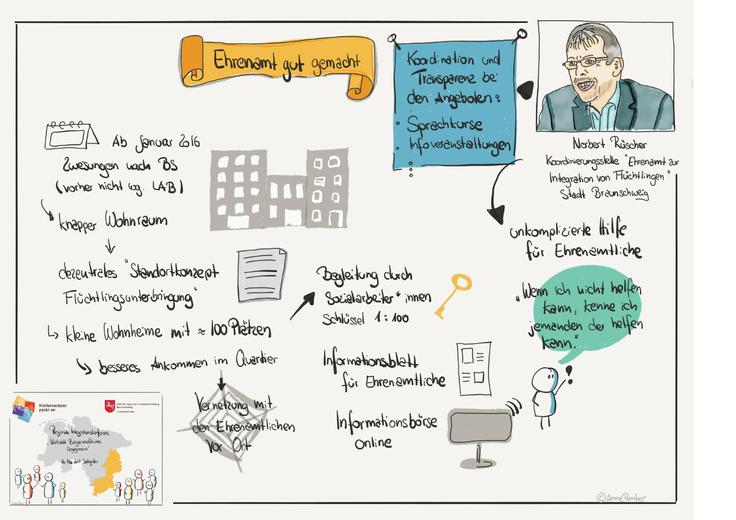 Ehrenamt gut gemacht
Koordination und
Transparenz bei
den Angeboten:
Sprachkurse
Infoveranstaltungen
Norbert Rüscher
Koordinierungsstelle "Ehrenamt zur
Integration von Flüchtlingen"
Stadt Braunschweig
Ab Januar 2016
Zuweisungen nach BS
(vorher nicht wg. LAB)
knapper Wohnraum
dezentrales "Standortkonzept
Flüchtlingsunterbringung"
kleine Wohnheime mit ≈ 100 Plätzen
besseres Ankommen im Quartier
Vernetzung mit
den Ehrenamtlichen
vor Ort
Begleitung durch
Sozialarbeiter*innen
Schlüssel 1:100
Informationsblatt
für Ehrenamtliche
Informationsbörse
online
unkomplizierte Hilfe
für Ehrenamtliche
„Wenn ich nicht helfen
kann, kenne ich
jemanden der helfen
kann."
Niedersachsen
packt an